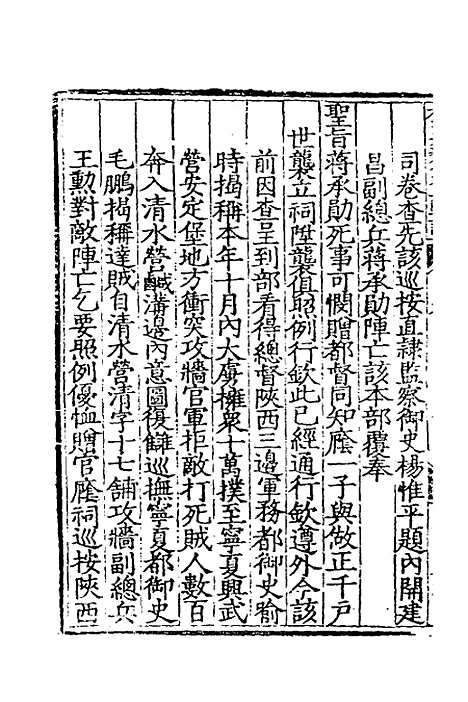 司卷查先該巡按直隸監察御史楊惟平題內開建
昌副總兵蔣承勛陣亡該本部覆奉
聖旨蔣承勛死事可憫贈都督同知廕一子與做正千戶
世襲立祠陞襲俱照例行欽此已經通行欽遵外今該
前因查呈到部看得總督陝西三邊軍務都御史喻
時揭稱本年十月內大虜擁衆十萬撲至寧夏興武
營安定堡地方衝突攻牆官軍拒敵打死賊人數百
奔入清水營鹹溝邊內意圖復讎巡撫寧夏都御史
毛鵬揭稱達賊自清水營清字十七鋪攻牆副總兵
王勳對敵陣亡乞要照例優恤贈官廕祠巡按陝西